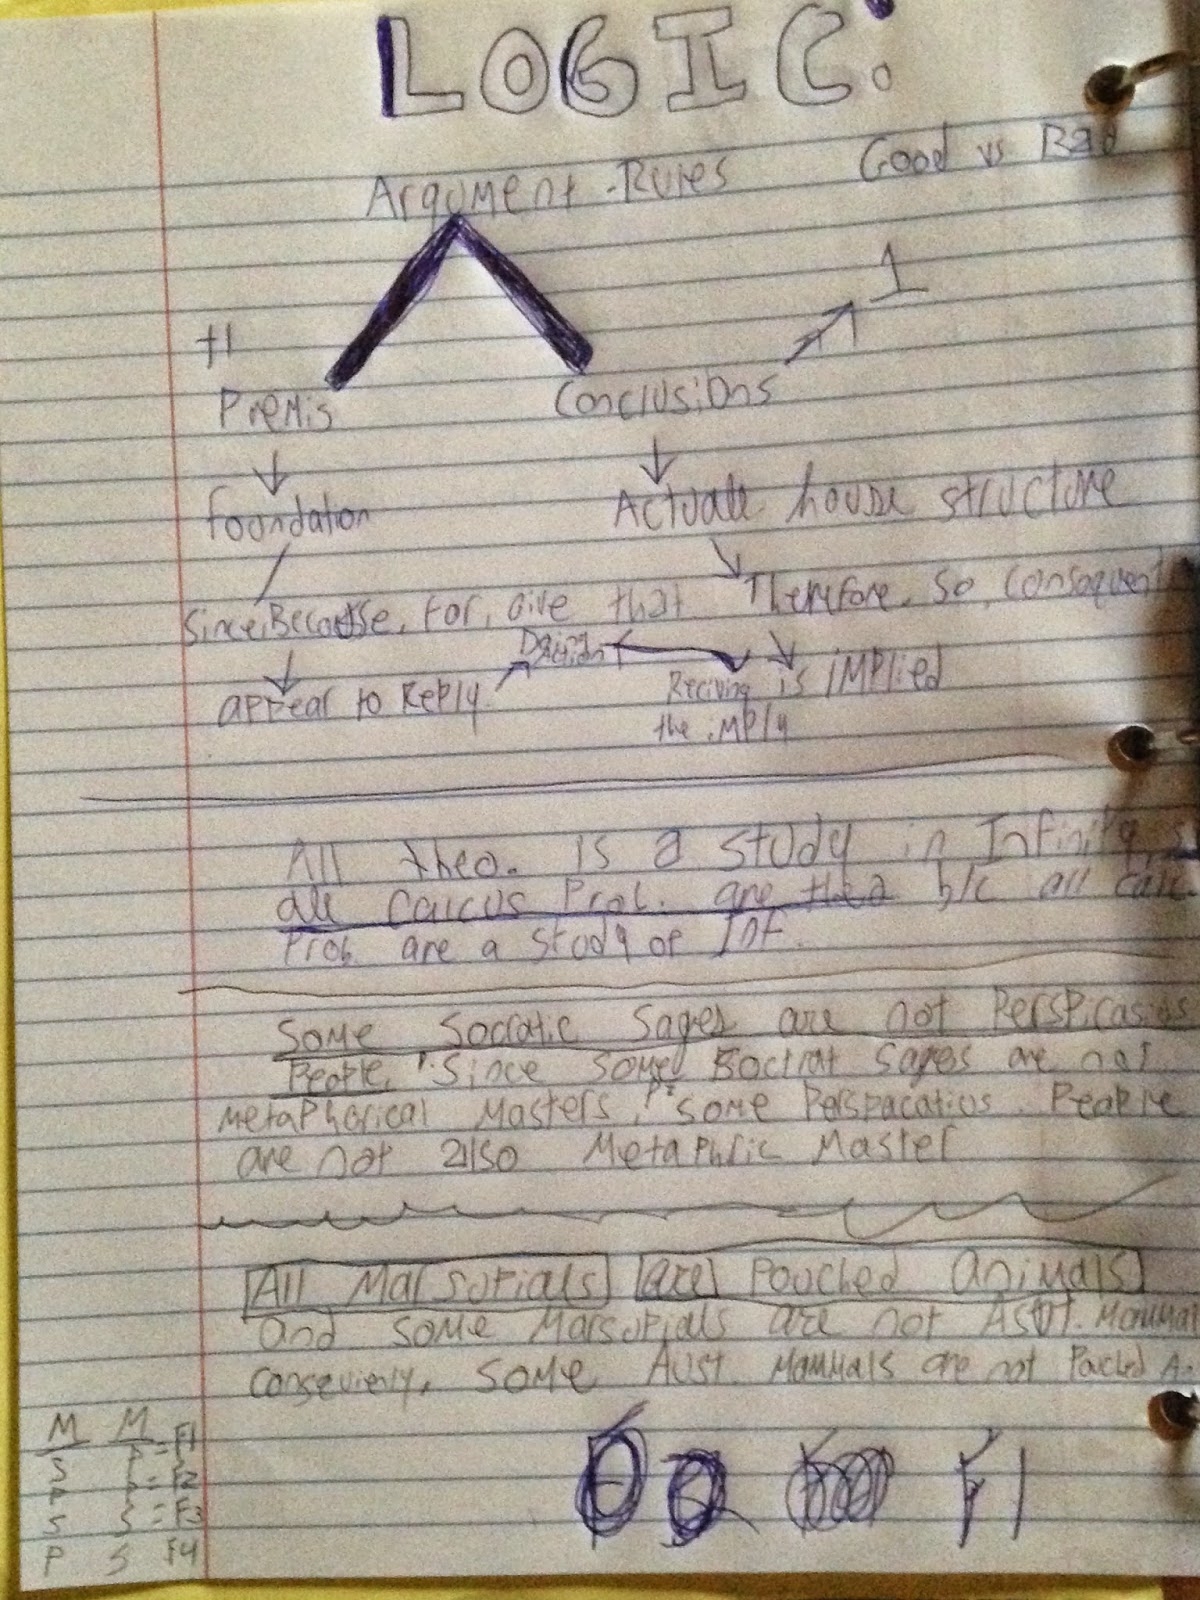 LOGIC:
Argument -Rules Good vs Bad
+1 1
Premis Conclusions
foundation Actuale house structure
Since, Becaouse, For, Give that Therefore, So, Consoquent
Doing Action
appear to Reply. Reciving is iMPlied
the iMPly
All theo. is a study in Infinity, s
all Calcus Prob. are theo b/c all calc.
Prob are a study of Inf.
Some Socratic Sages are not Perspicasios
People, Since some Soctrat Sages are not
Metaphorical Masters, P2 some Perspacatius People
are not also Metaphric Master
All Marsupials are Pouched animals
and some Marsupials are not Aust. Mammal
conseviently, some Aust. Mammals are not Pouched A.
M M
S P = F1
P P = F2
S S = F3
P S F4
F1